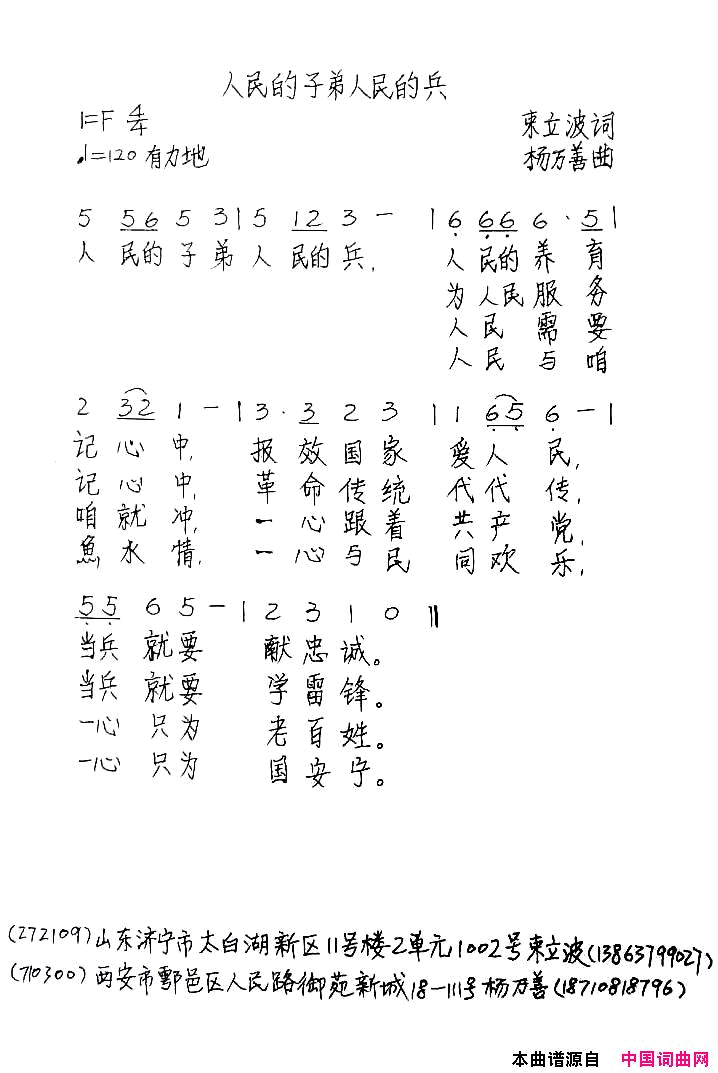 人民的子弟人民的兵
1=F 4/4
♩=120 有力地
束立波词
杨万善曲
5 56 5 3 | 5 12 3 - | 6 66 6 · 5 |
人 民的 子 弟 人 民的 兵, 人 民的 养 育
为 人民 服 务
人 民 需 要
人 民 与 咱
2 32 1 - | 3 · 3 2 3 | 1 65 6 - |
记 心 中, 报 效 国 家 爱 人 民,
记 心 中, 革 命 传 统 代 代 传,
咱 就 冲, 一 心 跟 着 共 产 党,
魚 水 情, 一 心 与 民 同 欢 乐,
55 6 5 - | 2 3 1 0 ‖
当兵 就要 献忠诚。
当兵 就要 学雷锋。
一心 只为 老百姓。
一心 只为 国安宁。
(272109)山东济宁市太白湖新区11号楼2单元1002号束立波(13863799027)
(710300)西安市鄠邑区人民路御苑新城18-111号杨万善(18710818796)
本曲谱源自 中国词曲网